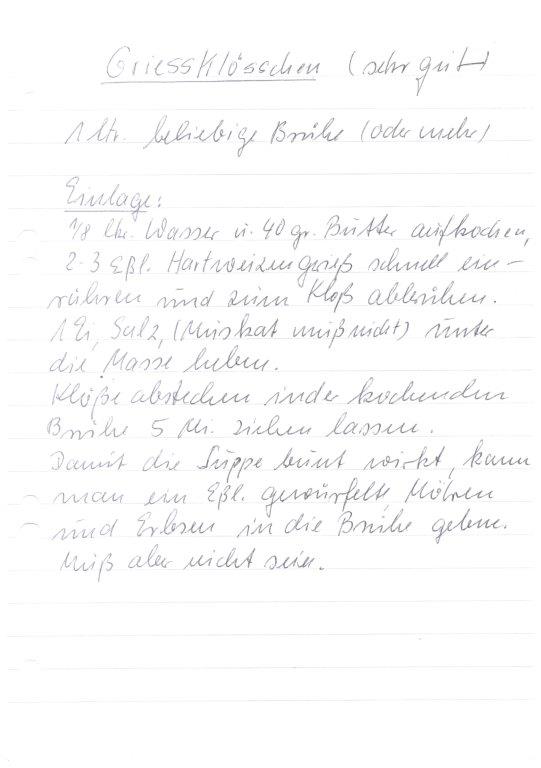 Griessklösschen (sehr gut)
1 ltr. beliebige Brühe (oder mehr)
Einlage:
1/8 ltr. Wasser u. 40 gr. Butter aufkochen,
2-3 Eßl. Hartweizengrieß schnell ein-
rühren und zum Kloß abbrühen.
1 Ei, Salz, (Muskat muß nicht) unter
die Masse heben.
Klöße abstechen in der kochenden
Brühe 5 Mi. ziehen lassen.
Damit die Suppe bunt wirkt, kann
man ein Eßl. gewürfelte Möhren
und Erbsen in die Brühe geben.
Muß aber nicht sein.